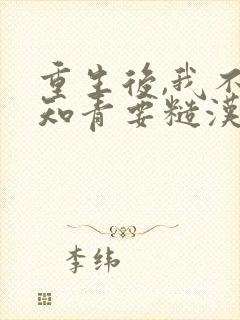 重生後,我不
知青要糙漢
李纬